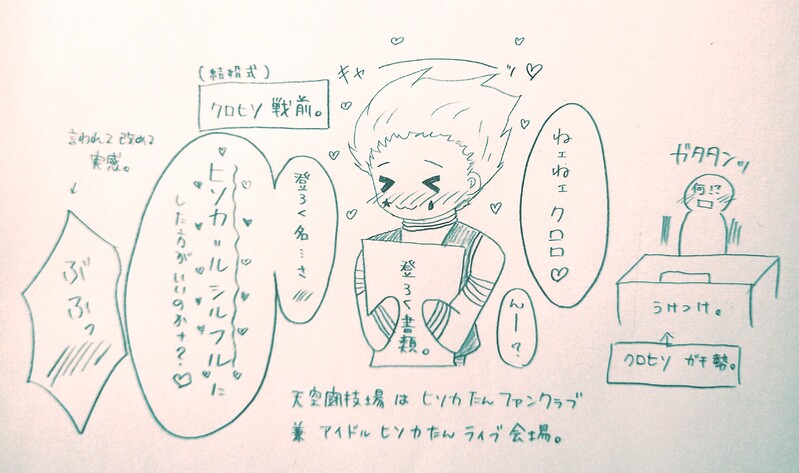 (結婚式)
クロヒソ 戦前。
キャ
ッ♡
ねェねェクロロ♡
んー?
登ろく書類。
登ろく名…さ
ヒソカ=ルシルフルに
した方がいいのかナ?♡
言われて改めて
実感。
ぶふっ
ガタタンッ
何!?
うけつけ。
クロヒソ ガチ勢。
天空闘技場 は ヒソカたん ファンクラブ
兼 アイドル ヒソカたん ライブ 会場。